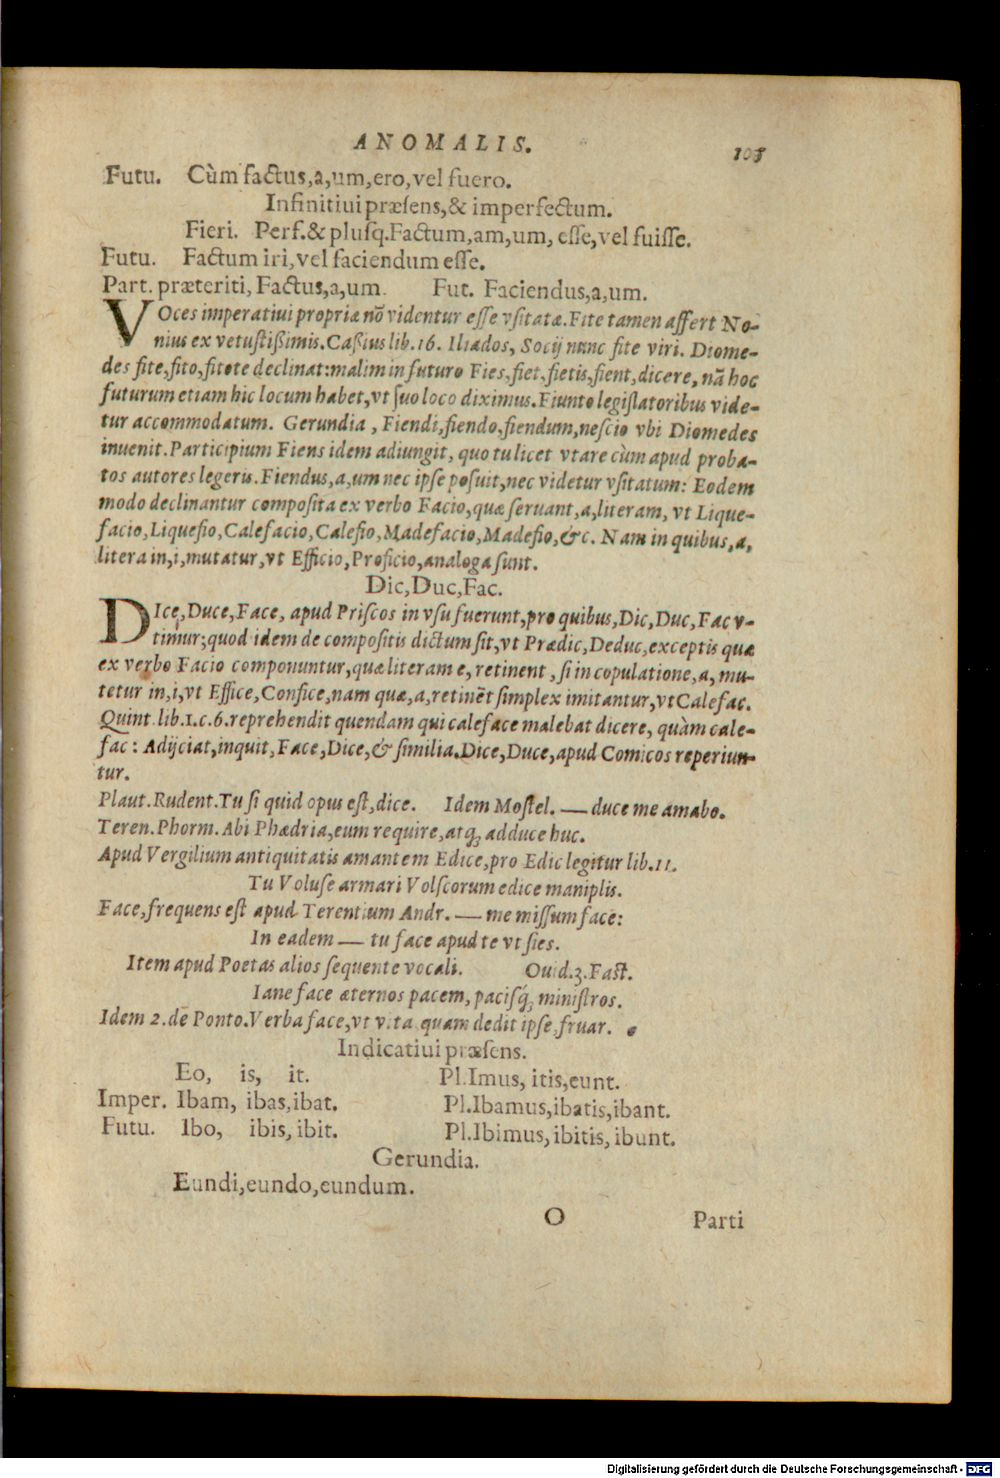 ANOMALIS. 105
Futu. Cùm factus,a,um,ero,vel fuero.
Infinitiui præſens,& imperfectum.
Fieri. Perf.& pluſq.Factum,am,um, eſſe,vel fuiſſe.
Futu. Factum iri,vel faciendum eſſe.
Part. præteriti, Factus,a,um. Fut. Faciendus,a,um.
VOces imperatiui propriæ nõ videntur eſſe vſitatæ.Fite tamen affert No-
nius ex vetuſtiſsimis.Caſsius lib.16. Iliados, Socij nunc fite viri. Diome-
des fite,fito,fitote declinat:malim in futuro Fies,fiet,fietis,fient,dicere, nã hoc
futurum etiam hic locum habet,vt ſuo loco diximus.Fiunto legiſlatoribus vide-
tur accommodatum. Gerundia , Fiendi,fiendo,fiendum,neſcio vbi Diomedes
inuenit.Participium Fiens idem adiungit, quo tu licet vtare cùm apud proba-
tos autores legeris.Fiendus,a,um nec ipſe poſuit,nec videtur vſitatum: Eodem
modo declinantur compoſita ex verbo Facio,quæ ſeruant,a,literam, vt Lique-
facio,Liquefio,Calefacio,Calefio,Madefacio,Madefio,&c. Nam in quibus,a,
litera in,i,mutatur,vt Efficio,Proficio,analoga ſunt.
Dic,Duc,Fac.
DIce,Duce,Face, apud Priſcos in vſu fuerunt,pro quibus,Dic,Duc,Fac v-
timur;quod idem de compoſitis dictum ſit,vt Prædic,Deduc,exceptis quæ
ex verbo Facio componuntur,quæ literam e, retinent , ſi in copulatione,a, mu-
tetur in,i,vt Effice,Confice,nam quæ,a,retinẽt ſimplex imitantur,vt Calefac.
Quint.lib.1.c.6.reprehendit quendam qui caleface malebat dicere, quàm cale-
fac: Adijciat,inquit,Face,Dice,& ſimilia.Dice,Duce,apud Comicos reperiun-
tur.
Plaut.Rudent.Tu ſi quid opus eſt,dice. Idem Moſtel. — duce me amabo.
Teren.Phorm.Abi Phædria,eum require,atq; adduce huc.
Apud Vergilium antiquitatis amantem Edice,pro Edic legitur lib.11.
Tu Voluſe armari Volſcorum edice maniplis.
Face,frequens eſt apud Terentium Andr. — me miſſum face:
In eadem — tu face apud te vt ſies.
Item apud Poetas alios ſequente vocali. Ouid.3.Faſt.
Iane face æternos pacem, paciſq́; miniſtros.
Idem 2.de Ponto.Verba face,vt vita quam dedit ipſe,fruar.
Indicatiui præſens.
Eo, is, it. Pl.Imus, itis,eunt.
Imper. Ibam, ibas,ibat. Pl.Ibamus,ibatis,ibant.
Futu. Ibo, ibis, ibit. Pl.Ibimus, ibitis, ibunt.
Gerundia.
Eundi,eundo,eundum.
O Parti
Digitalisierung gefördert durch die Deutsche Forschungsgemeinschaft - DFG